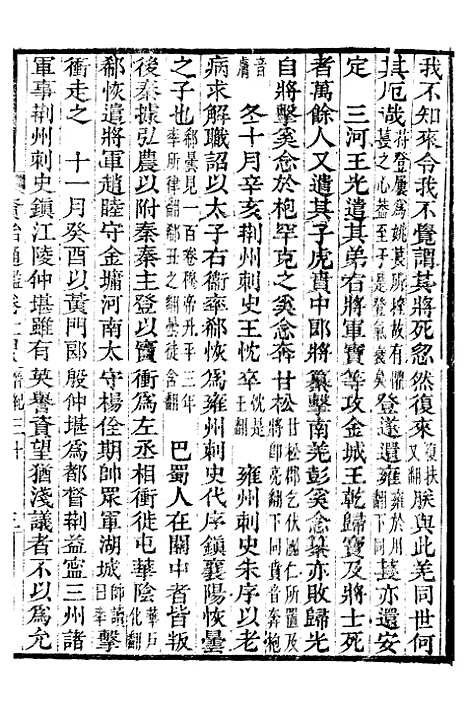 我不知來令我不覺謂其將死忽然復來復扶又翻朕與此羌同世何
其厄哉苻登屢爲姚萇所挫故有畏萇之心蓋至于是登氣衰矣登遂還雍雍於用翻下同萇亦還安
定　三河王光遣其弟右將軍寶等攻金城王乾歸寶及將士死
者萬餘人又遣其子虎賁中郎將纂擊南羌彭奚念纂亦敗歸光
自將擊奚念於枹罕克之奚念奔甘松甘松郡乞伏國仁所置將即亮翻下同賁音奔枹
音膚　冬十月辛亥荊州刺史王忱卒忱是壬翻　雍州刺史朱序以老
病求解職詔以太子右衞率郗恢爲雍州刺史代序鎭襄陽恢曇
之子也郗曇見一百卷穆帝升平三年率所律翻郗丑之翻曇徒含翻　巴蜀人在關中者皆叛
後秦據弘農以附秦秦主登以竇衝爲左丞相衝徙屯華陰華戶化翻
郗恢遣將軍趙睦守金墉河南太守楊佺期帥眾軍湖城帥讀曰率擊
衝走之　十一月癸酉以黃門郎殷仲堪爲都督荊益寧三州諸
軍事荊州刺史鎭江陵仲堪雖有英譽資望猶淺議者不以爲允